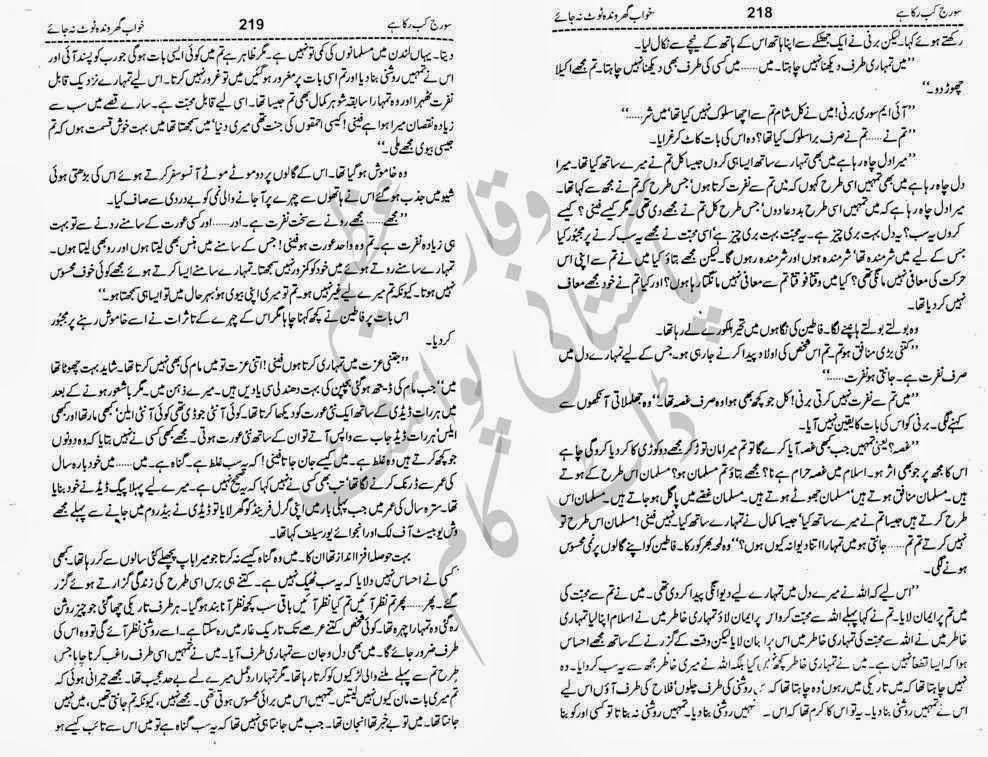 سورج کب رکا ہے 218 خواب گھروندہ ٹوٹ نہ جائے
رکھتے ہوئے کہا۔ لیکن برنی نے ایک جھٹکے سے اپنا ہاتھ اس کے ہاتھ کے نیچے سے نکال لیا۔
”میں تمہاری طرف دیکھنا نہیں چاہتا۔ میں...... میں کسی کی طرف بھی دیکھنا نہیں چاہتا۔ تم مجھے اکیلا
چھوڑ دو۔“
”آئی ایم سوری برنی! میں نے کل شام تم سے اچھا سلوک نہیں کیا تھا‘ میں شر......“
”تم نے...... تم نے صرف برا سلوک کیا تھا؟ وہ اس کی بات کاٹ کر غرایا۔
”میرا دل چاہ رہا ہے میں بھی تمہارے ساتھ ایسا ہی کروں جیسا کل تم نے میرے ساتھ کیا تھا۔ میرا
دل چاہ رہا ہے میں بھی تمہیں اسی طرح کہوں کہ میں تم سے نفرت کرتا ہوں‘ جس طرح کہ تم نے مجھ سے کہا تھا۔
میرا دل چاہ رہا ہے کہ میں تمہیں اسی طرح بددعا دوں‘ جس طرح کل تم نے مجھے دی تھی۔ مگر کیسے فینی؟ کیسے
کروں یہ سب؟ یہ دل بہت بری چیز ہے۔ یہ محبت بہت بری چیز ہے‘ اسی محبت نے مجھے یہ سب کرنے پر مجبور کیا
جس کے لیے میں شرمندہ تھا‘ شرمندہ ہوں اور شرمندہ رہوں گا۔ لیکن مجھے بتاؤ کیا میں نے تم سے اپنی اس
حرکت کی معافی نہیں مانگی تھی؟ کیا میں وقتاً فوقتاً تم سے معافی نہیں مانگتا رہا ہوں؟ اور کیا تم نے خود مجھے معاف
نہیں کر دیا تھا۔
وہ بولتے بولتے ہانپنے لگا۔ فاطین کی نگاہوں میں تحیر ہلکورے لے رہا تھا۔
”کتنی بڑی منافق ہو تم۔ تم اس شخص کی اولاد پیدا کرنے جا رہی ہو۔ جس کے لیے تمہارے دل میں
صرف نفرت ہے۔ جانتی ہو نفرت......“
”میں تم سے نفرت نہیں کرتی برنی! کل جو کچھ بھی ہوا وہ صرف غصہ تھا۔“ وہ جھلملاتی آنکھوں سے
کہنے لگی۔ برنی کو اس کی بات کا یقین نہیں آیا۔
”غصہ؟ یعنی تمہیں جب کبھی غصہ آیا کرے گا تو تم میرا مان توڑ کر مجھے دو کوڑی کا کر دیا کرو گی چاہے
اس کا مجھ پر جو بھی اثر ہو۔ اسلام میں غصہ حرام ہے نا؟ مجھے بتاؤ تم مسلمان ہو؟ مسلمان اس طرح کے ہوتے
ہیں۔ مسلمان منافق ہوتے ہیں۔ مسلمان جھوٹے ہوتے ہیں۔ مسلمان غصے میں پاگل ہو جاتے ہیں۔ مسلمان اس
طرح کرتے ہیں جیسا تم نے میرے ساتھ کیا‘ جیسا کمال نے تمہارے ساتھ کیا۔ نہیں فینی! مسلمان اس طرح تو
نہیں کرتے تم تم...... جانتی ہو میں تمہارا اتنا دیوانہ کیوں ہوں؟“ وہ لمحہ بھر کو رکا۔ فاطین کو اپنے گالوں پر نمی محسوس
ہونے لگی۔
”اس لیے کہ اللہ نے میرے دل میں تمہارے لیے دیوانگی پیدا کر دی تھی۔ میں نے تم سے محبت کی
میں تم پر ایمان لایا۔ تم نے کہا پہلے اللہ سے محبت کرو اس پر ایمان لاؤ تمہاری خاطر میں نے اسلام اپنا لیا تمہاری
خاطر میں نے اللہ سے محبت کی تمہاری خاطر میں اس پر ایمان لایا لیکن وقت کے گزرنے کے ساتھ مجھے احساس
ہوا کہ ایسا قطعاً نہیں ہے۔ میں نے تمہاری خاطر کچھ نہیں کیا بلکہ اللہ نے میری خاطر مجھ سے یہ سب کروایا۔ وہ
نہیں چاہتا تھا کہ میں تاریکی میں رہوں‘ وہ چاہتا تھا کہ میں روشنی کی طرف چلوں‘ فلاح کی طرف آؤں اس لیے
اس نے تمہیں روشنی بنا دیا۔ یہ تو اس کا کرم تھا کہ اس نے تمہیں روشنی بنا دیا۔ تمہیں روشنی نہ بناتا تو کسی اور کو بنا
سورج کب رکا ہے 219 خواب گھروندہ ٹوٹ نہ جائے
دیتا۔ یہاں لندن میں مسلمانوں کی کمی تو نہیں ہے۔ مگر ظاہر ہے تم میں کوئی ایسی بات ہو گی جو رب کو پسند آئی اور
اس نے تمہیں روشنی بنا دیا اور تم اسی بات پر مغرور ہو گئیں میں تو غرور نہیں کرتا۔ اس لیے تمہارے نزدیک قابل
نفرت ٹھہرا اور وہ تمہارا سابقہ شوہر کمال بھی تم جیسا تھا۔ اسی لیے قابل محبت ہے۔ سارے قصے میں سب سے
زیادہ نقصان میرا ہوا ہے فینی! کیسی احمقوں کی جنت تھی میری دنیا‘ میں سمجھتا تھا میں بہت خوش قسمت ہوں کہ تم
جیسی بیوی مجھے ملی۔“
وہ خاموش ہو گیا تھا۔ اس کے گالوں پر دو موٹے موٹے آنسو سفر کرتے ہوئے اس کی بڑھتی ہوئی
شیو میں جذب ہو گئے اس نے ہاتھوں سے چہرے پر آ جانے والی نمی کو بے دردی سے صاف کیا۔
”مجھے...... مجھے رونے سے سخت نفرت ہے۔ اور...... اور کسی عورت کے سامنے رونے سے تو بہت
ہی زیادہ نفرت ہے۔ تم وہ واحد عورت ہو فینی! جس کے سامنے میں ہنس بھی لیتا ہوں اور رو بھی لیتا ہوں۔
تمہارے سامنے روتے ہوئے میں خود کو کمزور نہیں سمجھتا۔ تمہارے سامنے ایسا کرتے ہوئے مجھے کوئی خوف محسوس
نہیں ہوتا۔ کیونکہ تم میرے لیے غیر نہیں ہو۔ تم تو میری اپنی بیوی ہو‘ بہرحال میں تو ایسا ہی سمجھتا ہوں۔“
اس بات پر فاطین نے کچھ کہنا چاہا مگر اس کے چہرے کے تاثرات نے اسے خاموش رہنے پر مجبور
کر دیا۔
”جتنی عزت میں تمہاری کرتا ہوں فینی! اتنی عزت تو میں مام کی بھی نہیں کرتا تھا۔ شاید بہت چھوٹا تھا
میں‘ جب مام کی ڈیتھ ہو گئی بچپن کی بہت دھندلی سی یادیں ہیں۔ میرے ذہن میں۔ مگر باشعور ہونے کے بعد
میں ہر رات ڈیڈی کے ساتھ ایک نئی عورت کو دیکھا کرتا تھا۔ کوئی آنٹی جوڈی تھی کوئی آنٹی ایلن‘ کبھی مارتھا اور کبھی
ایلس‘ ہر رات ڈیڈ جاب سے واپس آتے تو ان کے ساتھ نئی عورت ہوتی۔ مجھے کبھی کسی نے نہیں بتایا کہ وہ دونوں
جو کچھ کرتے ہیں وہ غلط ہے۔ میں کیسے جان جاتا فینی! کہ یہ سب غلط ہے۔ گناہ ہے۔ میں...... میں خود بارہ سال
کی عمر سے ڈرنک کرنے لگا تھا‘ تب بھی کسی نے نہیں کہا کہ یہ صحیح نہیں ہے۔ میرے لیے پہلا پیگ ڈیڈ نے خود بنایا
تھا۔ سترہ سال کی عمر میں جب پہلی بار میں اپنی گرل فرینڈ کو گھر لایا تو ڈیڈی نے بیڈروم میں جانے سے پہلے مجھے
وش یو بیسٹ آف لک اور انجوائے یورسیلف کہا تھا۔
بہت حوصلہ افزا انداز تھا ان کا۔ میں وہ گناہ کیسے نہ کرتا جو میرا باپ پچھلے کئی سالوں سے کر رہا تھا۔ کبھی
کسی نے احساس نہیں دلایا کہ یہ سب ٹھیک نہیں ہے۔ کتنے ہی برس اسی طرح کی زندگی گزارتے ہوئے گزر
گئے۔ پھر...... پھر تم نظر آئیں تم کیا نظر آئیں باقی سب کچھ نظر آنا بند ہو گیا۔ ہر طرف تاریکی چھا گئی جو چیز روشن
رہ گئی وہ تمہارا چہرہ تھا۔ کوئی شخص کتنے عرصے تک تاریک غار میں رہ سکتا ہے۔ اسے روشنی نظر آئے گی تو وہ اس کی
طرف ضرور جائے گا۔ میں بھی دل و جان سے تمہاری طرف آیا۔ میں نے تمہیں اسی طرف راغب کرنا چاہا جس
طرح تم سے پہلے ملنے والی لڑکیوں کو کرتا رہا تھا۔ مگر تمہارا ردعمل میرے لیے بے حد عجیب تھا۔ مجھے حیرانی ہوئی کہ
تم میری بات مان کیوں نہیں لیتیں‘ تمہیں اس میں برائی محسوس ہوتی تھی۔ مجھے نہیں‘ کیونکہ تم جانتی تھیں‘ میں نہیں
جانتا تھا۔ میں تو بے خبر تھا انجان تھا۔ جب میں جانتا ہی نہیں تھا کہ یہ سب گناہ ہے تو میں اس سے تائب کیسے ہو